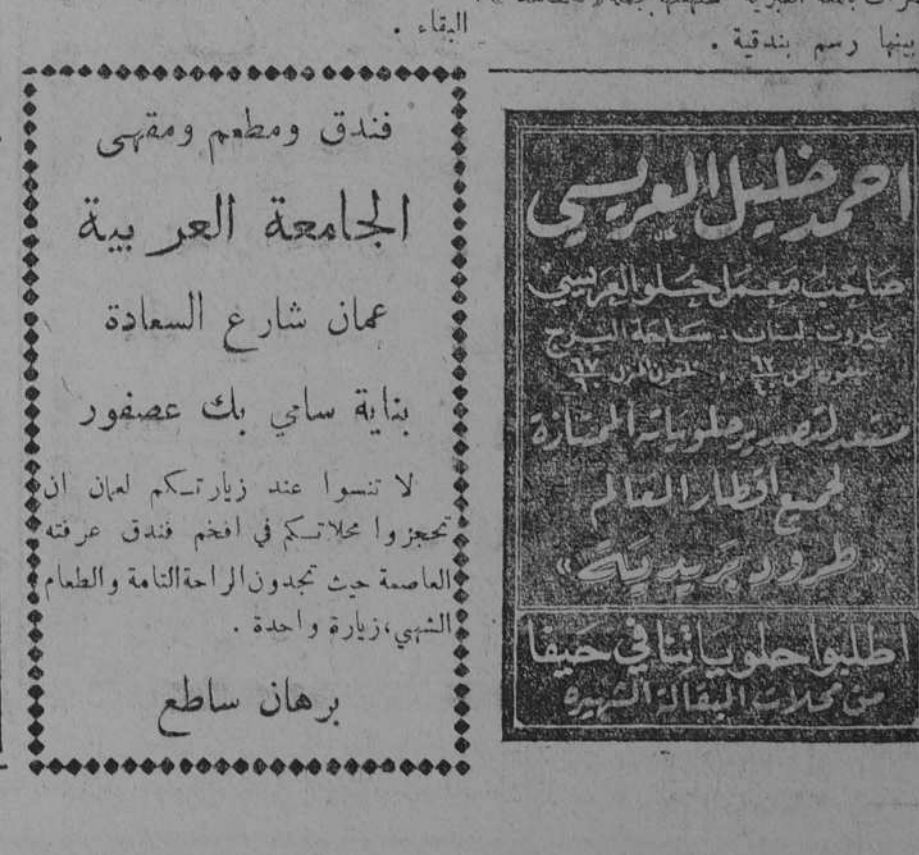 بينها رسم بندقية .
احمد خليل العريسي
صاحب معمل حلو العريسي
بيروت - لبنان - ساحة البرج
مستعد لتصدير حلوياته الممتازة
لجميع اقطار العالم
« طرود بريدية »
اطلبوا حلوياتنا في حيفا
من محلات البقالة الشهيرة
البقاء .
فندق ومطعم ومقهى
الجامعة العربية
عمان شارع السعادة
بناية سامي بك عصفور
لا تنسوا عند زيارتكم لعمان ان
تحجزوا محلاتكم في افخم فندق عرفته
العاصمة حيث تجدون الراحة التامة والطعام
الشهي،زيارة واحدة .
برهان ساطع